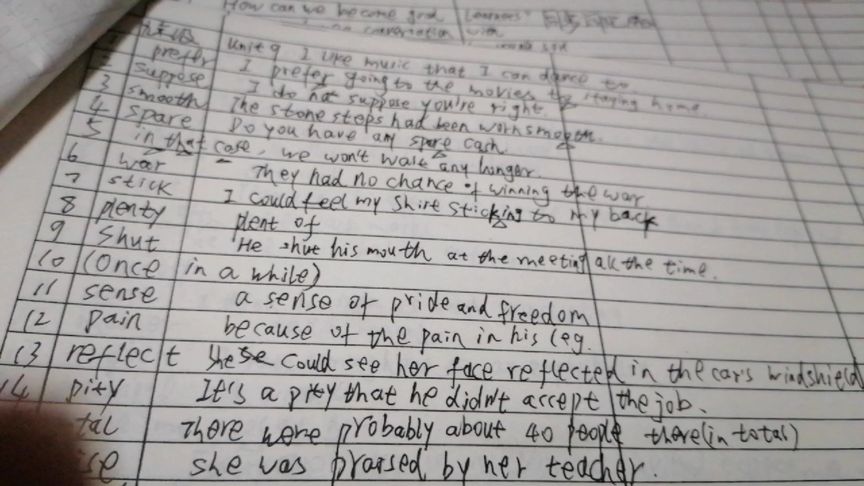 How can we become good learners?
conversation with
Unit 9 I like music that I can dance to
prefer I prefer going to the movies to staying home.
suppose I do not suppose you're right.
3 smooth The stone steps had been worn smooth.
4 spare Do you have any spare cash
5 in that case, we won't wait any longer.
6 war They had no chance of winning the war
7 stick I could feel my shirt sticking to my back
8 plenty plent of
9 shut He shut his mouth at the meeting all the time.
10 (once in a while)
11 sense a sense of pride and freedom
12 pain because of the pain in his leg.
13 reflect She could see her face reflected in the car's windshield
14 pity It's a pity that he didn't accept the job.
tal There were probably about 40 people there (in total)
ise she was praised by her teacher.